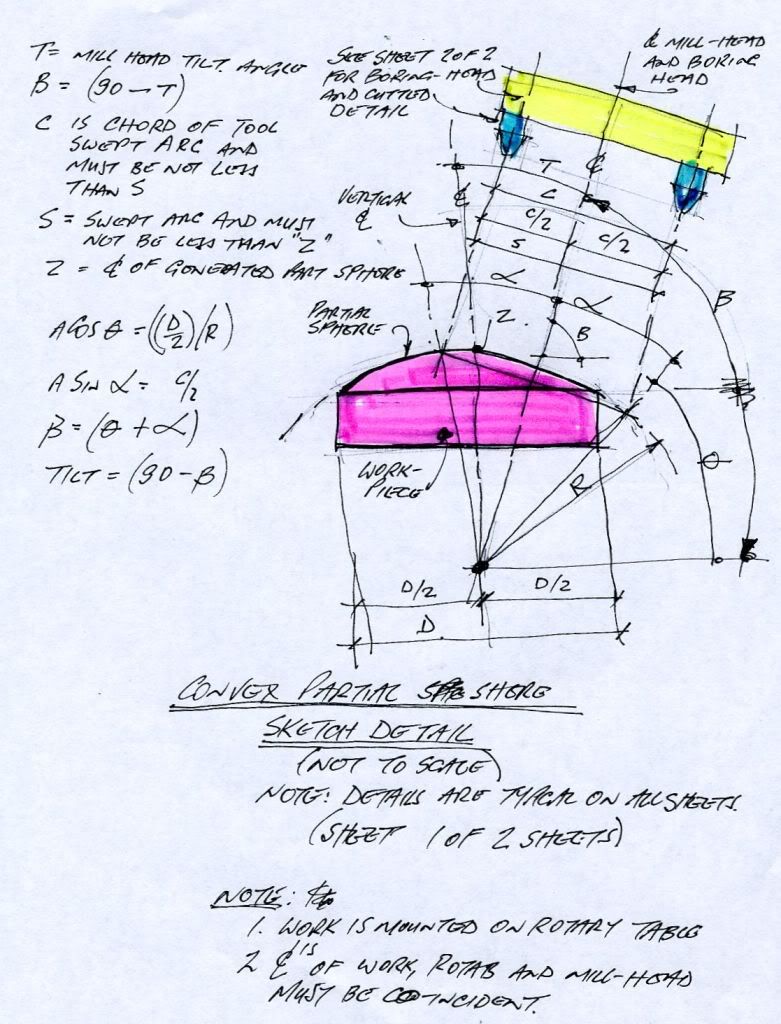 T = MILL HEAD TILT ANGLE
B = (90 - T)
C IS CHORD OF TOOL
SWEPT ARC AND
MUST BE NOT LESS
THAN S
S = SWEPT ARC AND MUST
NOT BE LESS THAN "Z"
Z = ℄ OF GENERATED PART SPHERE
A COS θ = ((D/2)/R)
A SIN α = C/2
β = (θ + α)
TILT = (90 - β)
SEE SHEET 2 OF 2
FOR BORING-HEAD
AND CUTTER
DETAIL
℄ MILL-HEAD
AND BORING
HEAD
VERTICAL
℄
T
℄
℄
C
C/2
C/2
S
α
α
B
Z
B
PARTIAL
SPHERE
WORK-
PIECE
R
θ
D/2
D/2
D
CONVEX PARTIAL SPHERE
SKETCH DETAIL
(NOT TO SCALE)
NOTE: DETAILS ARE TYPICAL ON ALL SHEETS.
(SHEET 1 OF 2 SHEETS)
NOTE:
1. WORK IS MOUNTED ON ROTARY TABLE
2 ℄'IS OF WORK, ROTAB AND MILL-HEAD
MUST BE COINCIDENT.